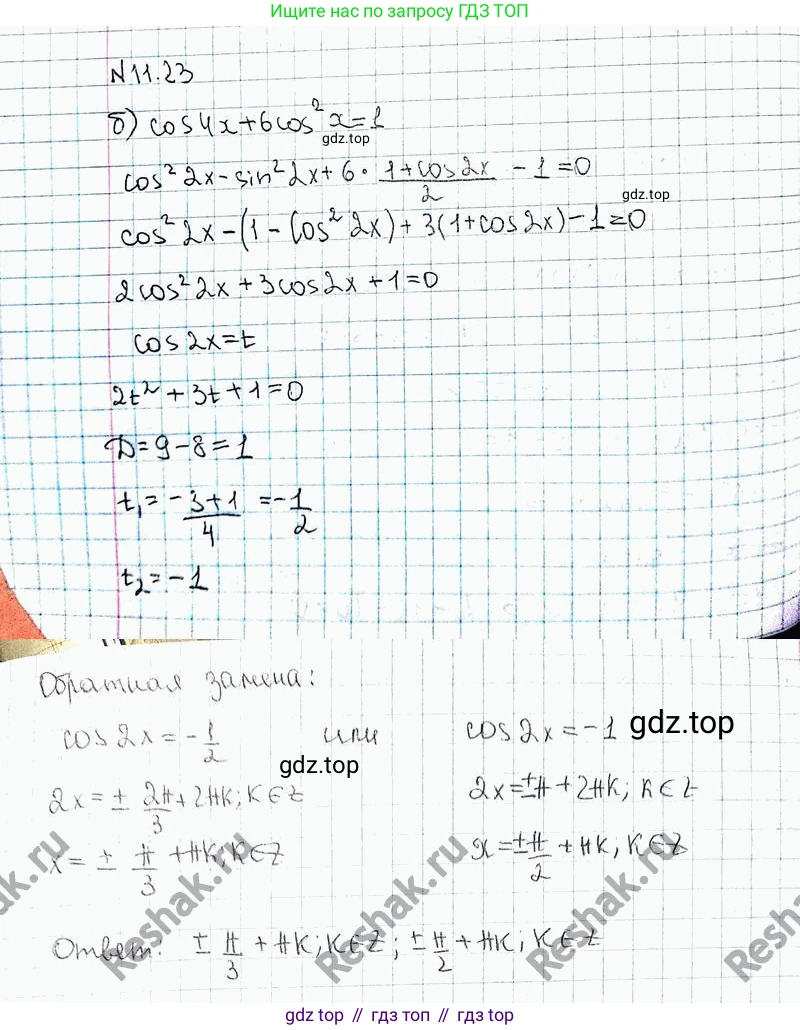 Ищите нас по запросу ГДЗ ТОП
N11.23
б) cos4x+6cos²x=1
gdz.top
cos²2x-sin²2x+6·(1+cos2x)/2-1=0
gdz.top
cos²2x-(1-cos²2x)+3(1+cos2x)-1=0
2cos²2x+3cos2x+1=0
cos2x=t
2t²+3t+1=0
D=9-8=1
t₁=(-3+1)/4=-1/2
t₂=-1
Обратная замена:
cos2x=-1/2 или cos2x=-1
gdz.top
gdz.top
2x=±2π/3+2πk; k∈Z 2x=±π+2πk; k∈Z
x=±π/3+πk; k∈Z x=±π/2+πk, k∈Z
Ответ: ±π/3+πk; k∈Z; ±π/2+πk; k∈Z
ak.ru
Reshak.ru
Reshak.ru
Reshak.ru
Resha
gdz.top // гдз.топ // gdz.top